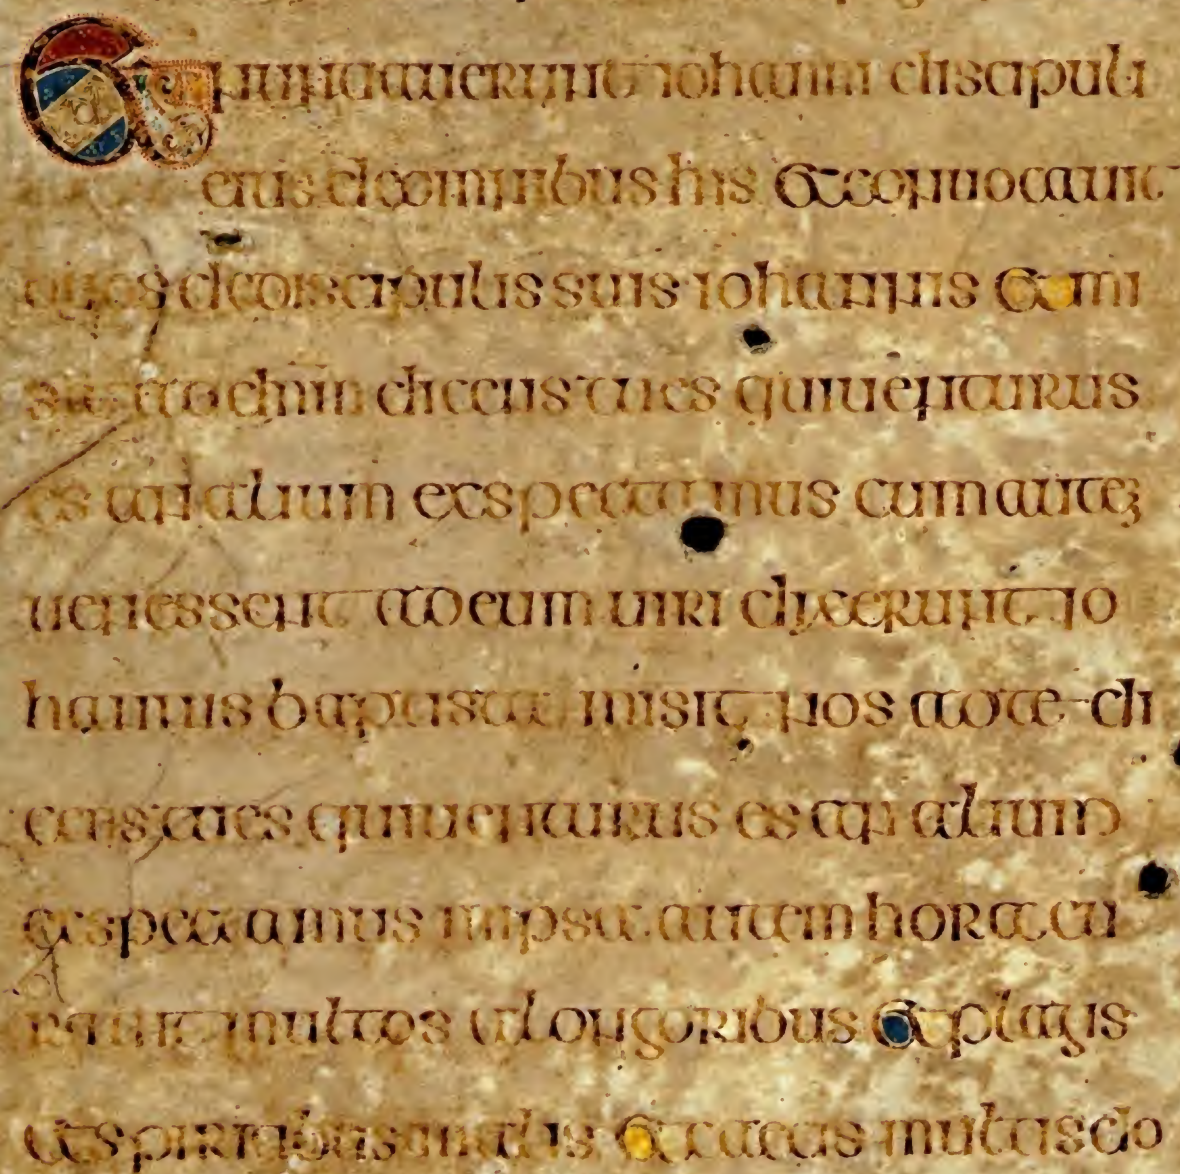 Et nuntiauerunt iohanni discipuli
eius de omnibus his Et conuocauit
duos de discipulis suis iohannis Et mi
sit ad dnm dicens tu es qui uenturus
es an alium exspectamus cum autē
uenissent ad eum uiri dixerunt io
hannis baptista misit nos ad te di
cens tu es qui uenturus es an alium
exspectamus in ipsa autem hora cu
rauit multos a longoribus Et plagis
et spiritibus malis Et caecis multis do